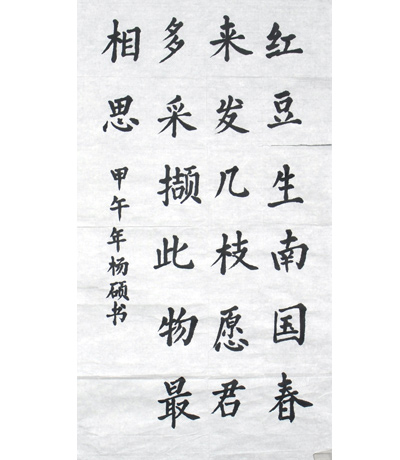 红豆生南国春
来发几枝愿君
多采撷此物最
相思
甲午年杨硕书